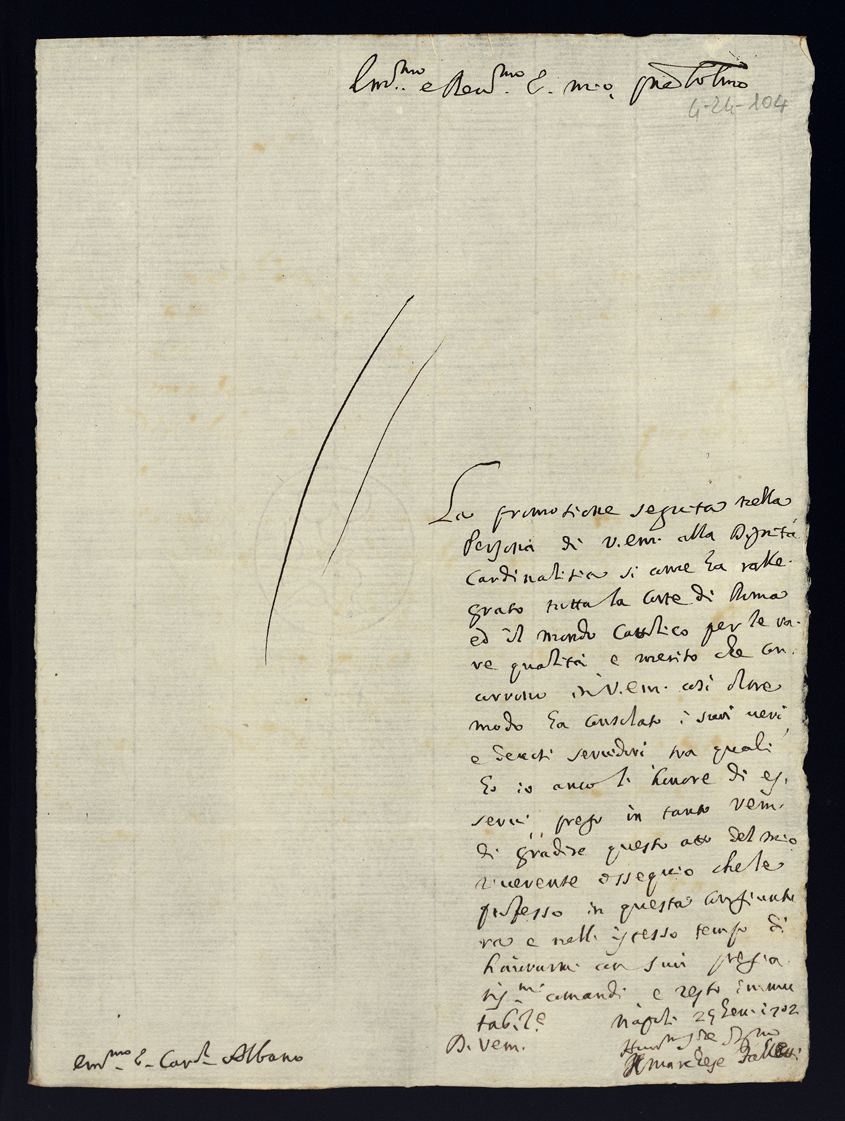 Em.mo e Reu.mo S. mio
4-24-104
La promotione seguita nella
Persona di V. em. alla Dignità
Cardinalitia si come ha ralle-
grato tutta la Corte di Roma
ed il mondo Cattolico per le ra-
re qualità e merito che con-
corrono in V. em. così oltre
modo ha consolato i suoi ueri
e deuoti seruidori tra quali
ho io anco l'honore di es-
serui prego in tanto V em.
di gradire questo atto del mio
riuerente ossequio che le
professo in questa congiuntu
ra e nell' istesso tempo di
honorarmi con suoi pregia-
tis.mi comandi e resto immu
tabile Napoli 29
D. V em.
Il marchese
em.mo S. Card. Albano